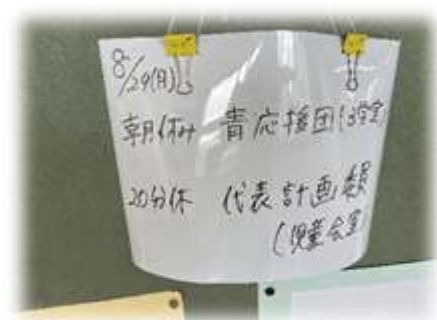 8/29(月)
朝休み 青応援団(3学室)
20分休 代表計画委員
(児童会室)